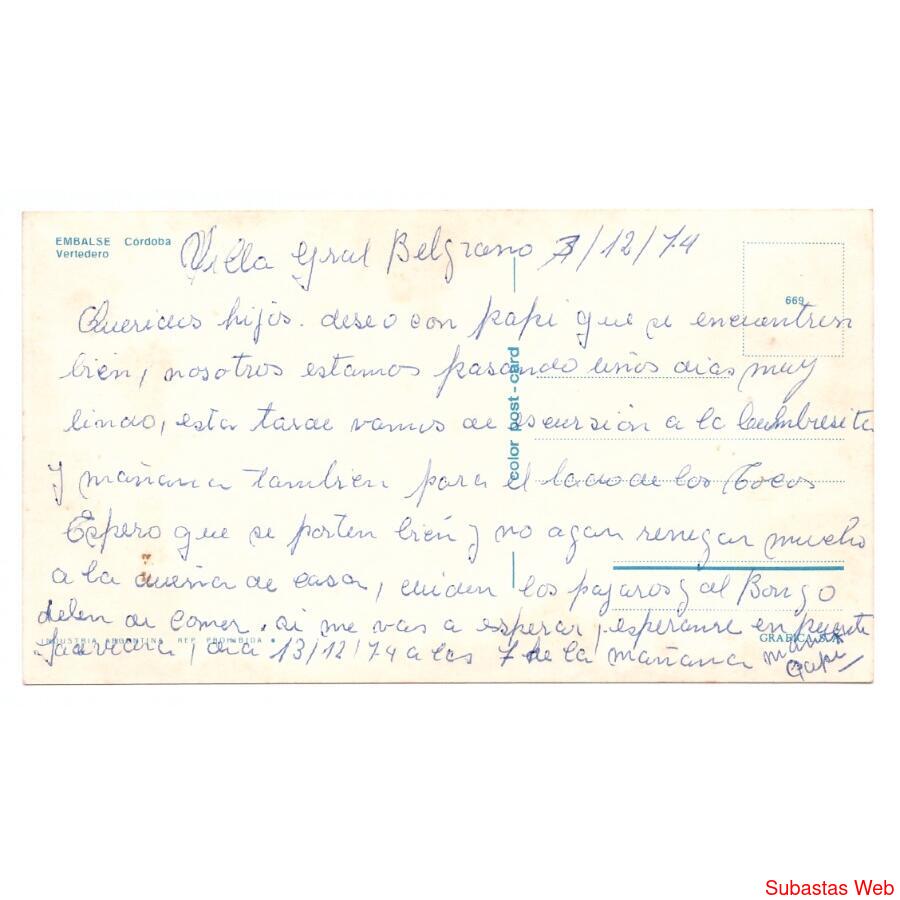 EMBALSE Córdoba
Vertedero
Villa Gral Belgrano 7/12/74
669
Queridos hijos. deseo con papi que se encuentren
bién, nosotros estamos pasando unos dias muy
lindo, esta tarde vamos de escursión a la Cumbresita
y mañana tambien para el lado de los Cocos
Espero que se porten bién y no agan renegar mucho
a la dueña de casa, cuiden los pajaros y al Bongo
delen de comer. si me vas a esperar, esperanre en puente
Saavedra, dia 13/12/74 a las 7 de la mañana mami
Papi
color post-card
INDUSTRIA ARGENTINA REP. PROHIBIDA
GRAFICA
Subastas Web